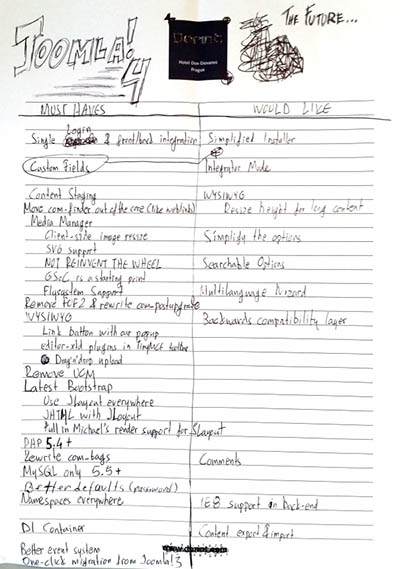 JOOMLA! 4
THE FUTURE...
Hotel Don Giovanni
Prague
MUST HAVES
WOULD LIKE
Login
Single & front/back integration
Simplified Installer
Custom Fields
Integrator Mode
Content Staging
WYSIWYG
Move com-finder out of the core (like weblinks)
Resize height for long content
Media Manager
Client-side image resize
Simplify the options
SVG support
NOT REINVENT THE WHEEL
Searchable Options
GSoC is a starting point
Flysystem Support
Multilanguage Wizard
Remove FOF2 & rewrite com-postupgrate
WYSIWYG
Backwards compatibility layer
Link button with our popup
editor-xtd plugins in TinyMCE toolbar
Drag'n'drop upload
Remove UCM
Latest Bootstrap
Use JLayout everywhere
JHTML with JLayout
Pull in Michael's render support for JLayout
PHP 5.4+
Rewrite com-tags
Comments
MySQL only 5.5+
Better defaults (password)
Namespaces everywhere
IE8 support in back-end
DI Container
Content export & import
Better event system
One-click migration from Joomla! 3